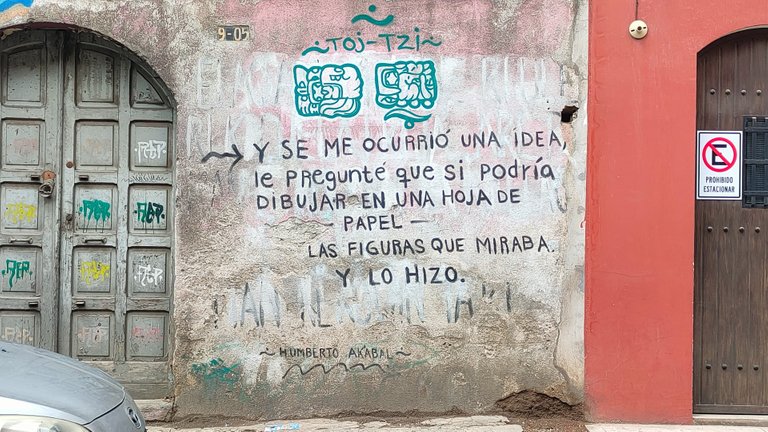 9-05
TOJ-TZI
Y SE ME OCURRIÓ UNA IDEA,
le PREGUNTÉ QUE SI PODRÍA
DIBUJAR EN UNA HOJA DE
— PAPEL —
LAS FIGURAS QUE MIRABA.
Y LO HIZO.
~ HUMBERTO AKABAL ~
E
PROHIBIDO
ESTACIONAR